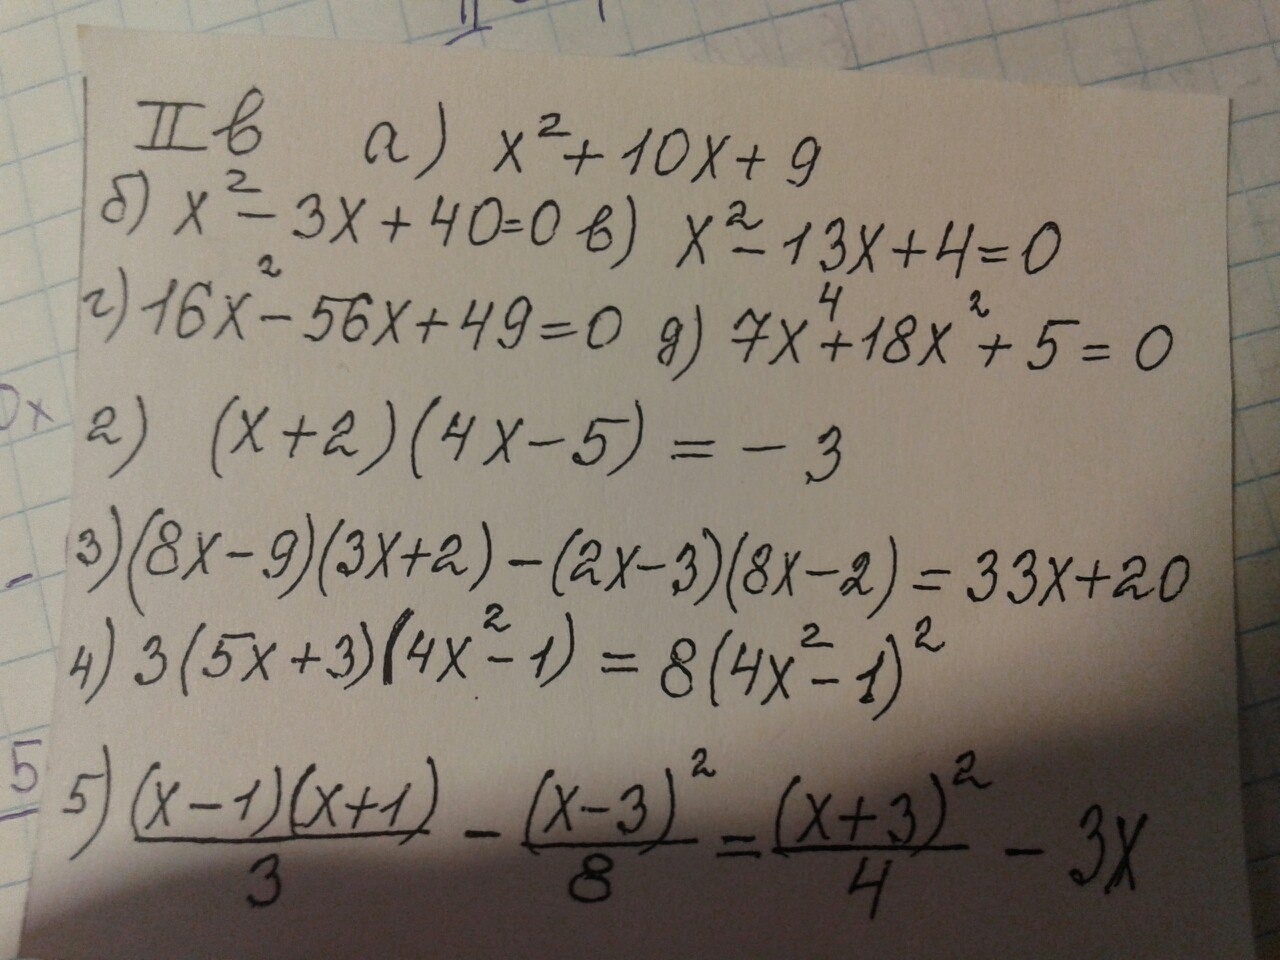 IIв а) x²+10x+9
б) x²-3x+40=0 в) x²-13x+4=0
г) 16x²-56x+49=0 д) 7x⁴+18x²+5=0
2) (x+2)(4x-5)=-3
3) (8x-9)(3x+2)-(2x-3)(8x-2)=33x+20
4) 3(5x+3)(4x²-1)=8(4x²-1)²
5) (x-1)(x+1)/3 - (x-3)²/8 = (x+3)²/4 - 3x